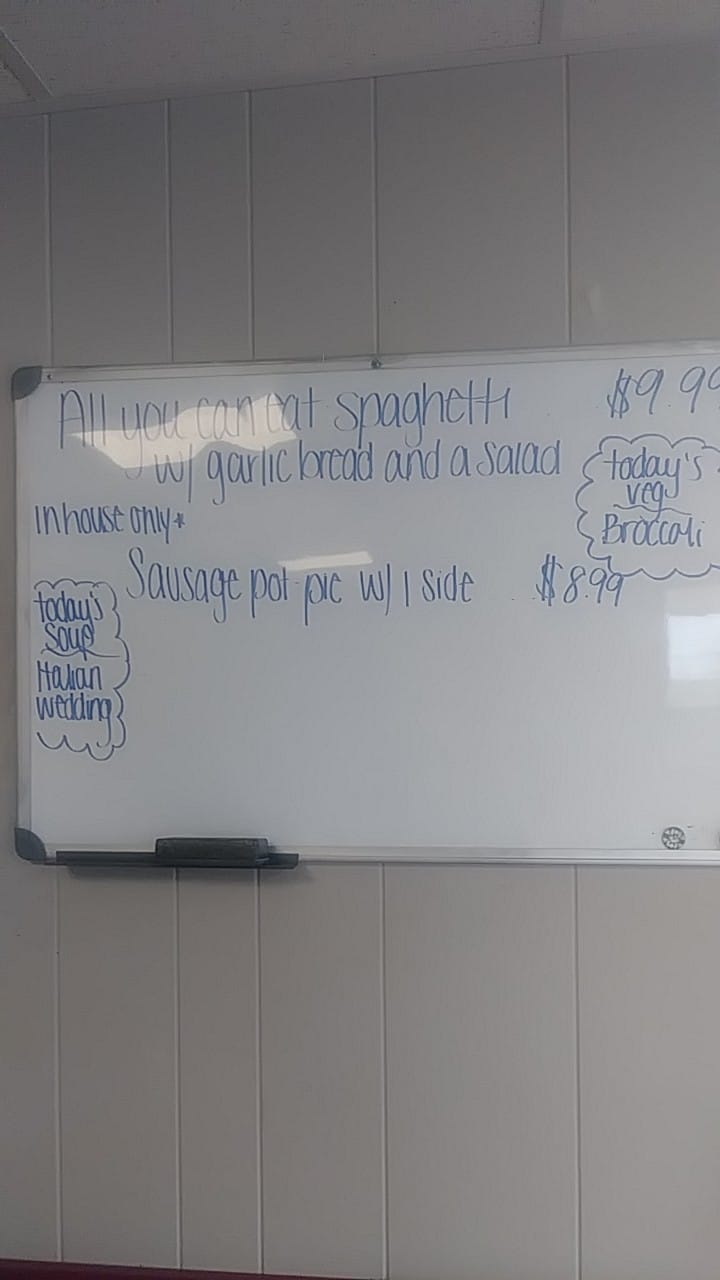 All you can eat spaghetti $9.99
w/ garlic bread and a salad
today's
veg
Broccoli
In house only*
Sausage pot pie w/ 1 side $8.99
today's
soup
Italian
wedding